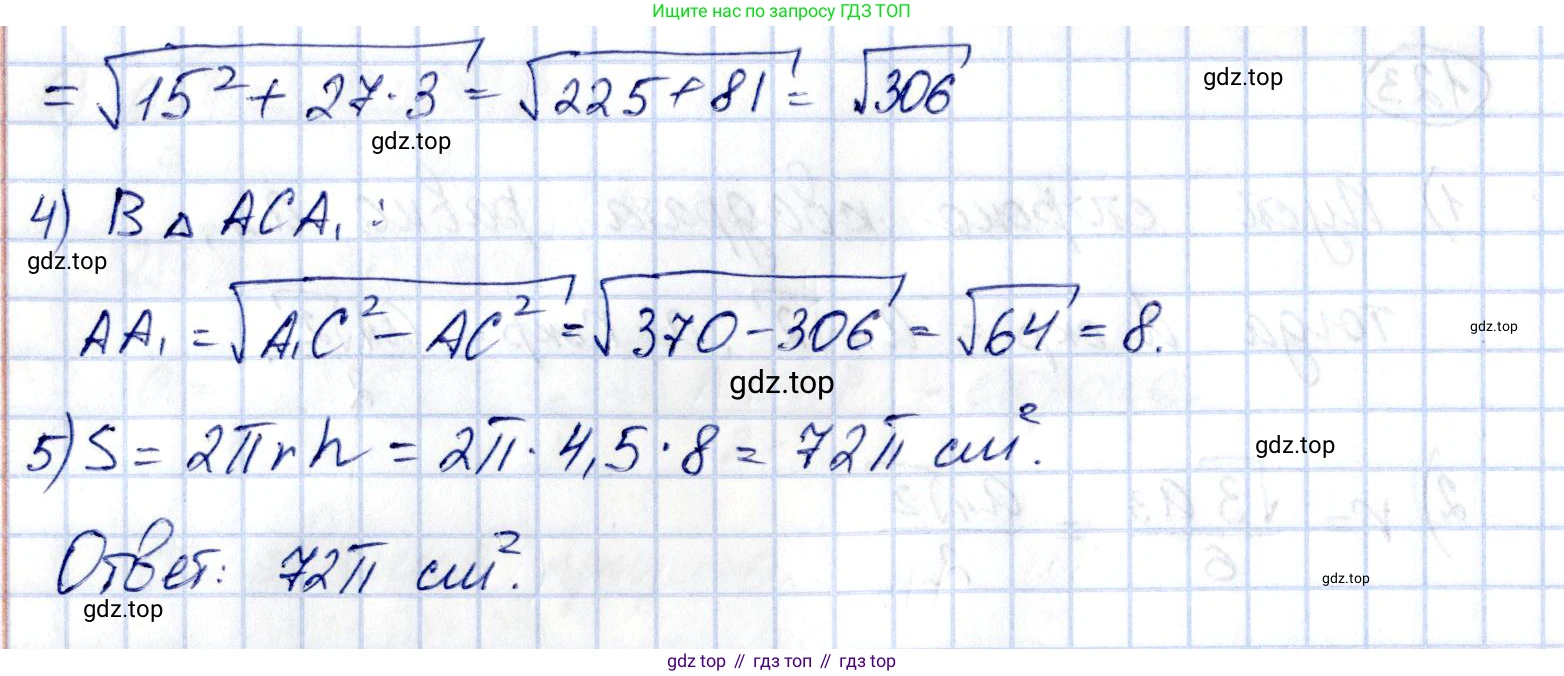 Ищите нас по запросу ГДЗ ТОП
= √(15² + 27·3) = √(225 + 81) = √306
gdz.top
gdz.top
4) В △ ACA₁:
gdz.top
AA₁ = √(A₁C² − AC²) = √(370 − 306) = √64 = 8.
gdz.top
gdz.top
5) S = 2πrh = 2π · 4,5 · 8 = 72π см².
gdz.top
Ответ: 72π см².
gdz.top
gdz.top
gdz top // гдз топ // гдз top